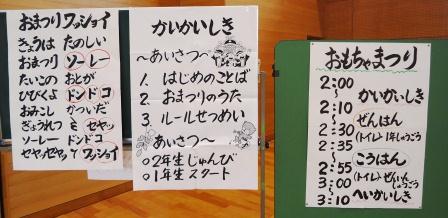 おまつりワッショイ
きょうは たのしい
おまつり ソーレー
たいこの おとが
ひびくよ ドンドコ
おみこし かついだ
ぎょうれつ セヤッ
ソーレー ドンドコ
セヤッセヤッ ワッショイ
かいかいしき
〜あいさつ〜
1. はじめのことば
2. おまつりのうた
3. ルールせつめい
あいさつ〜
○2年生じゅんび
○1年生スタート
おもちゃまつり
2:00
かいかいしき
2:10
〜 ぜんはん
2:30 (トイレ)1年しゅうごう
2:35
〜 こうはん
2:55 (トイレ)ぜんいんしゅうごう
3:00
〜 へいかいしき
3:10